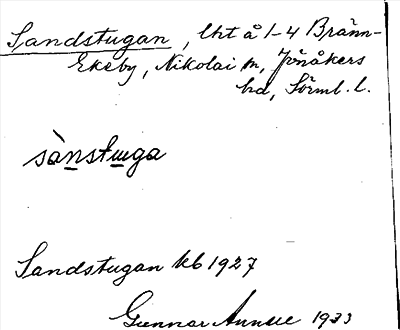 Sandstugan, lht å 1-4 Bränn-
Ekeby, Nikolai m, Jönåkers
hd, Sörml. l.
sànstuga
Sandstugan kb 1927
Gunnar 1933